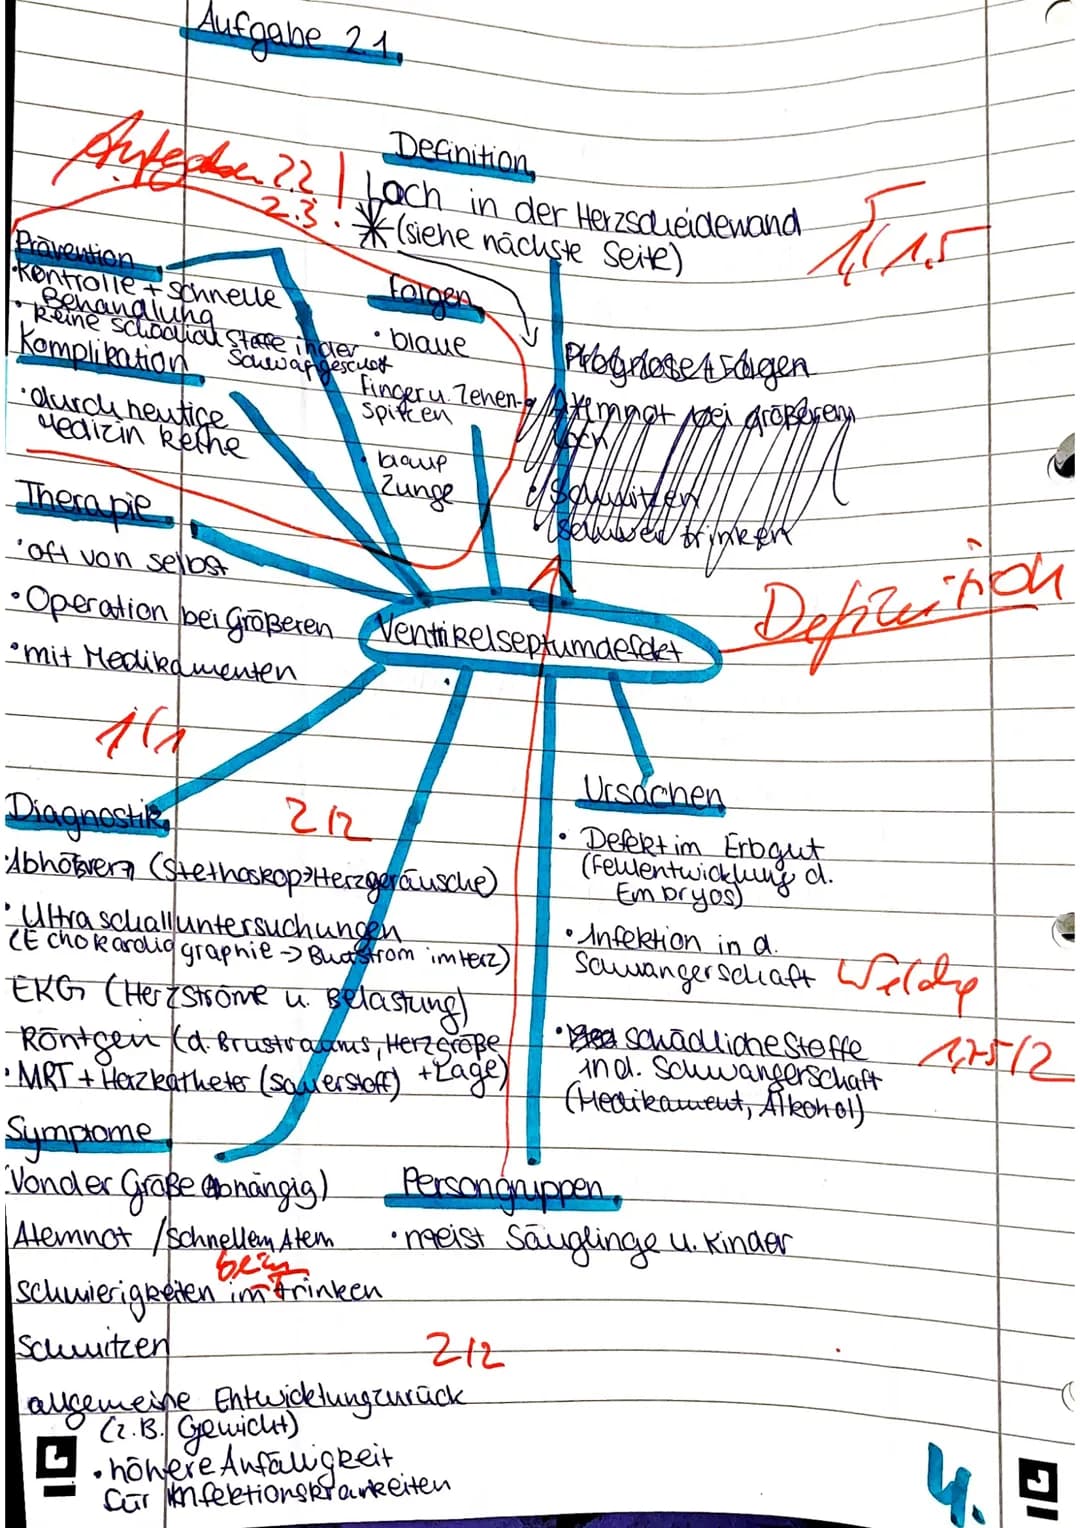 Aufgabe 2.1.
Aufgaben 2.2
2.3. !
Definition
Loch in der Herzscheidewand
* (siehe nächste Seite)
1,5/1.5
Prävention
• Kontrolle + schnelle
Behandlung
• keine schädlich Stoffe in der
Schwangeschaft
Komplikation
• durch heutige
Medizin keine
Folgen
• blaue
Finger u. Zehen-
spitzen
• blaue
Zunge
Prognose + Folgen
Atemnot bei größerem
Loch
• Schwitzen
• schwer trinken
Therapie
• oft von selbst
• Operation bei Größeren
• mit Medikamenten
1/1
Ventrikelseptumdefekt
Definition
Diagnostik
2/2
• Abhören (Stethoskop→Herzgeräusche)
• Ultraschalluntersuchungen
(Echokardiographie -> Blutstrom im Herz)
EKG (Herzströme u. Belastung)
Röntgen (d. Brustraums, Herzgröße
+ Lage)
• MRT + Herzkatheter (Sauerstoff)
Ursachen
• Defekt im Erbgut
(Fehlentwicklung d.
Embryos)
• Infektion in d.
Schwangerschaft Welche
• schädliche Stoffe
in d. Schwangerschaft
(Medikament, Alkohol)
1,75/2
Symptome
(Von der Größe abhängig)
Atemnot / schnellem Atem
beim
schwierigkeiten im trinken
Schwitzen
2/2
allgemeine Entwicklung zurück
(z.B. Gewicht)
• höhere Anfälligkeit
für Infektionskrankeiten
Persongruppen
• meist Säuglinge u. Kinder
4.